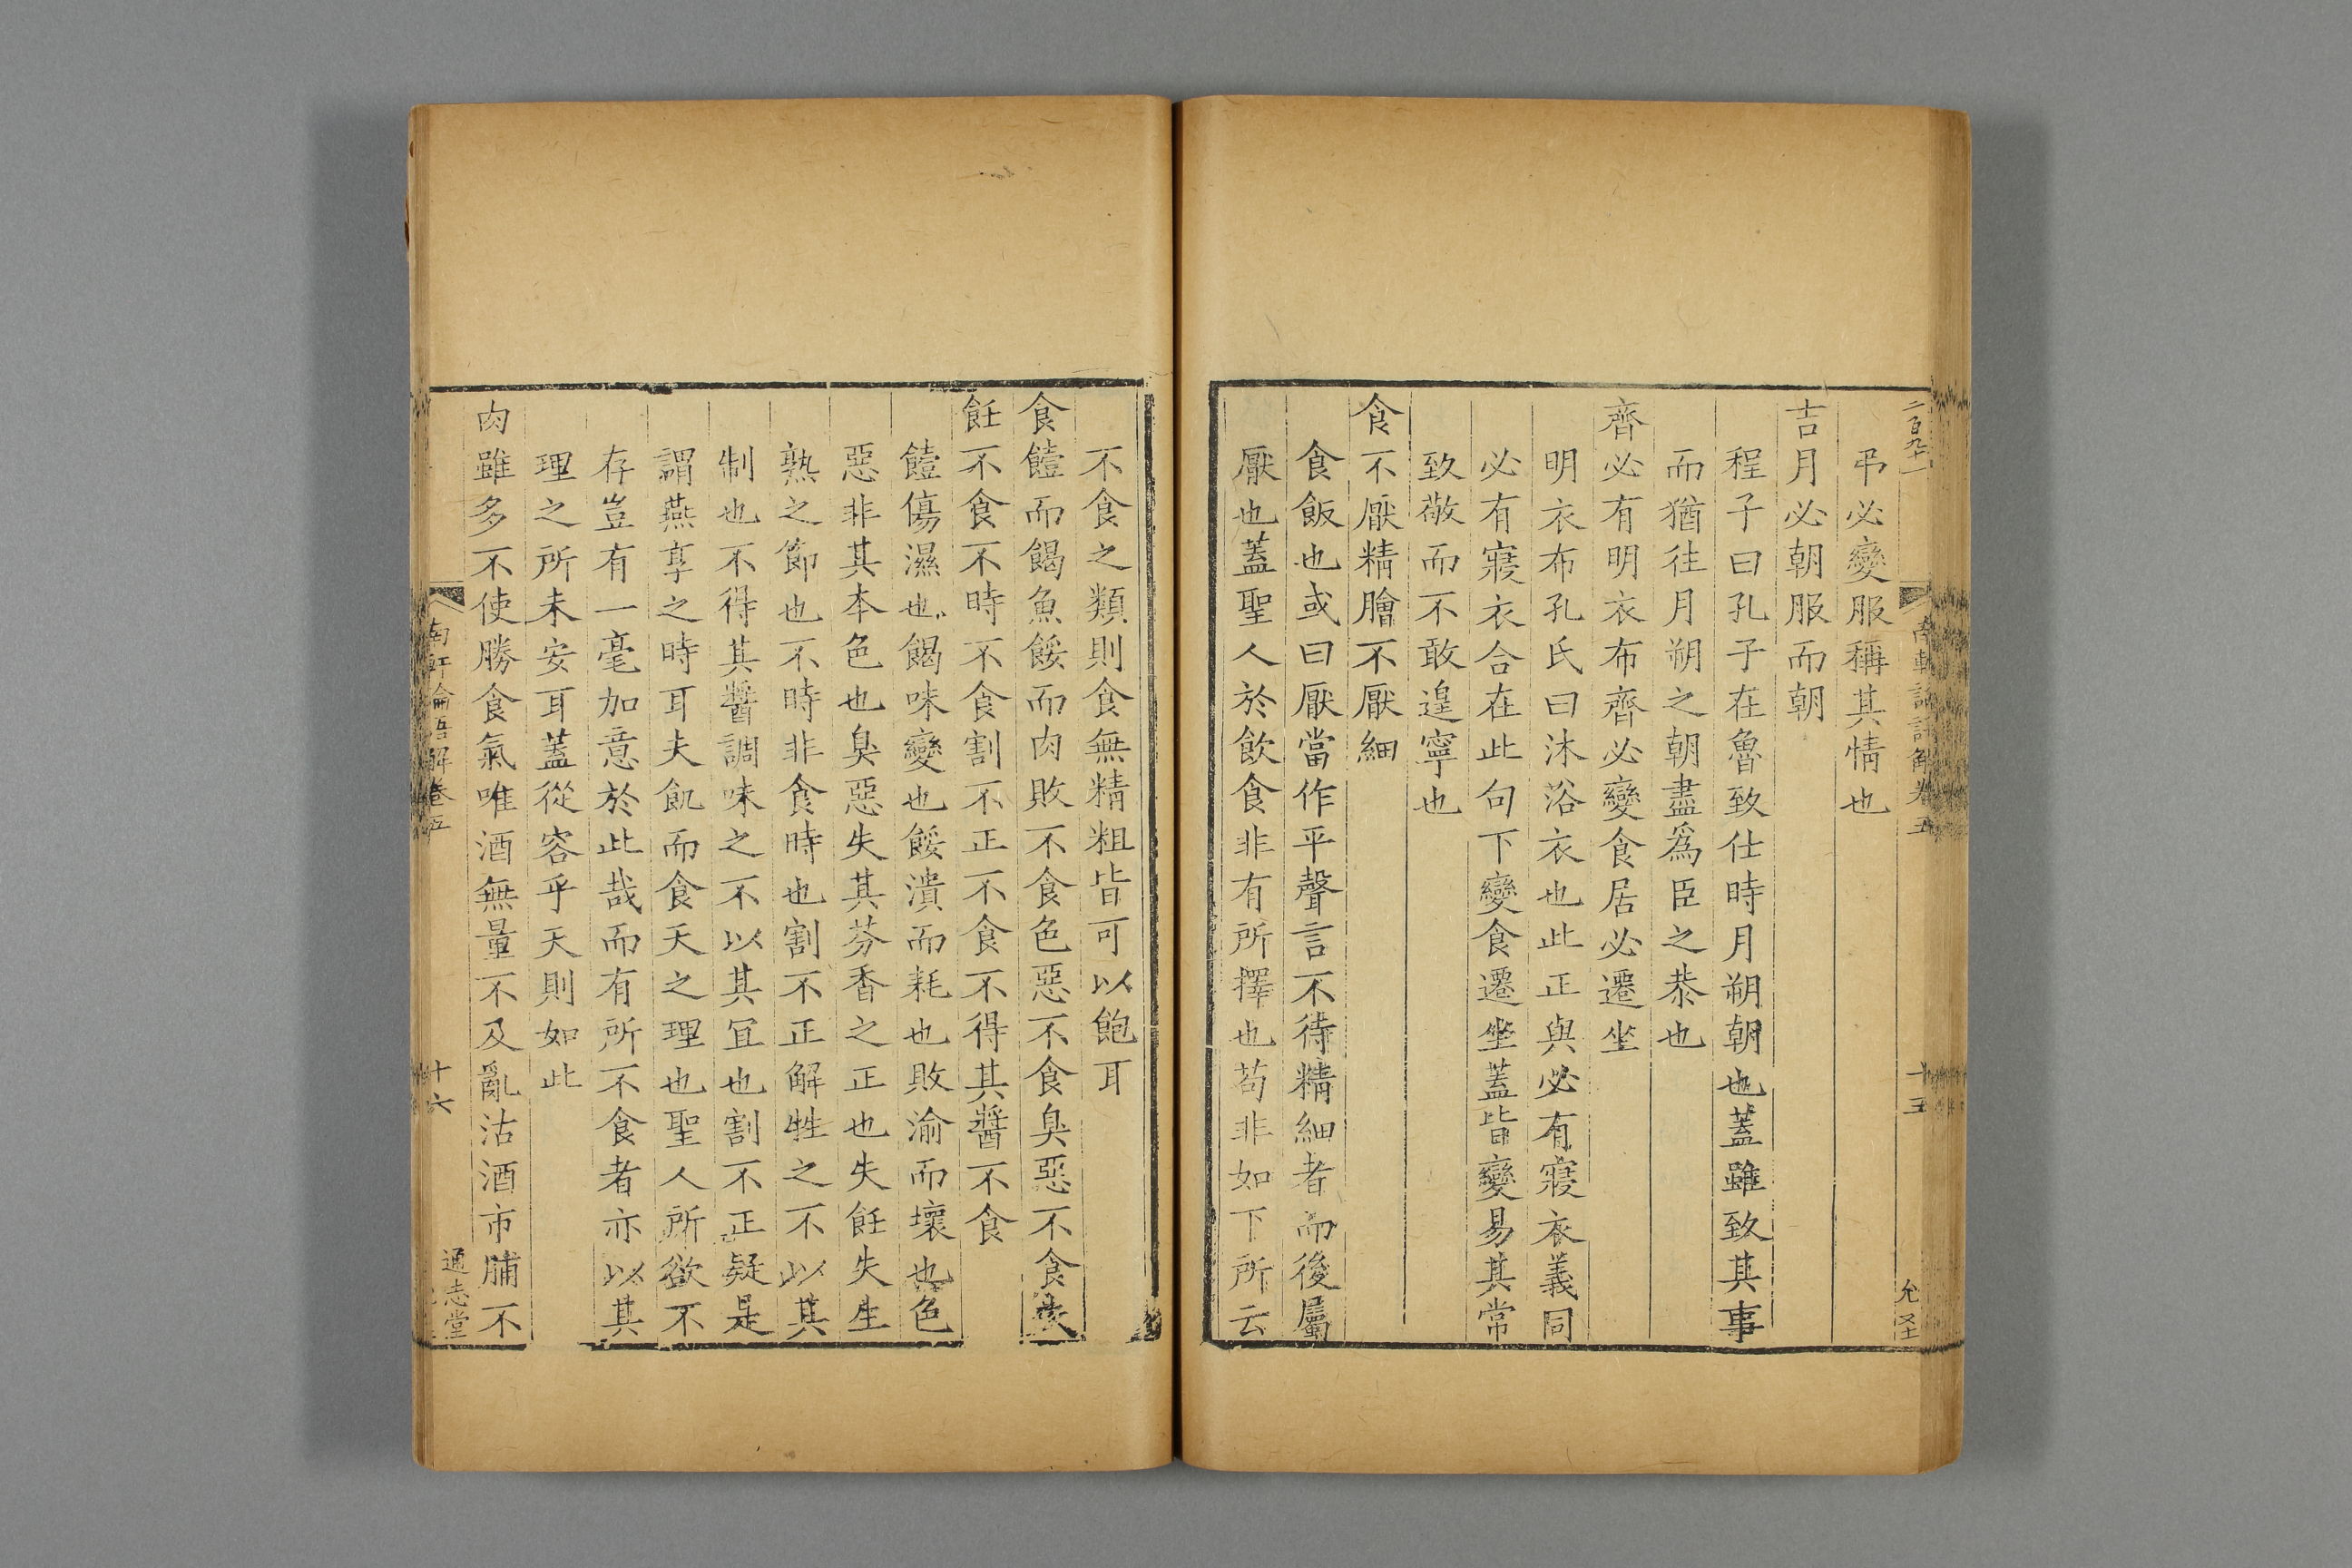 二百九十一
弔必變服稱其情也
吉月必朝服而朝
程子曰孔子在魯致仕時月朔朝也蓋雖致其事
而猶往月朔之朝盡爲臣之恭也
齊必有明衣布齊必變食居必遷坐
明衣布孔氏曰沐浴衣也此正與必有寢衣義同
必有寢衣合在此句下變食遷坐蓋皆變易其常
致敬而不敢遑寧也
食不厭精膾不厭細
食飯也或曰厭當作平聲言不待精細者而後屬
厭也蓋聖人於飲食非有所擇也苟非如下所云
不食之類則食無精粗皆可以飽耳
食饐而餲魚餒而肉敗不食色惡不食臭惡不食失
飪不食不時不食割不正不食不得其醬不食
饐傷濕也餲味變也餒潰而耗也敗渝而壞也色
惡非其本色也臭惡失其芬香之正也失飪失生
熟之節也不時非食時也割不正解牲之不以其
制也不得其醬調味之不以其宜也割不正疑是
謂燕享之時耳夫飢而食天之理也聖人所欲不
存豈有一毫加意於此哉而有所不食者亦以其
理之所未安耳蓋從容乎天則如此
肉雖多不使勝食氣唯酒無量不及亂沽酒市脯不
南軒論語解卷五
十六
通志堂